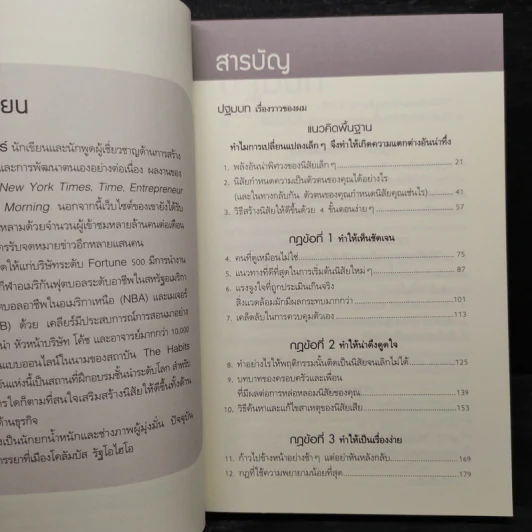 ยน
ร์ นักเขียนและนักพูดผู้เชี่ยวชาญด้านการสร้าง
และการพัฒนาตนเองอย่างต่อเนื่อง ผลงานของ
New York Times, Time, Entrepreneur
Morning นอกจากนี้เว็บไซต์ของเขายังได้รับ
หลามด้วยจำนวนผู้เข้าชมหลายล้านคนต่อเดือน
ครรับจดหมายข่าวอีกหลายแสนคน
ดให้แก่บริษัทระดับ Fortune 500 มีการนำงาน
กีฬาอเมริกันฟุตบอลระดับอาชีพในสหรัฐอเมริกา
ตบอลอาชีพในอเมริกาเหนือ (NBA) และเมเจอร์
B) ด้วย เคลียร์มีประสบการณ์การสอนมาอย่าง
นำ หัวหน้าบริษัท โค้ช และอาจารย์มากกว่า 10,000
แบบออนไลน์ในนามของสถาบัน The Habits
บันแห่งนี้เป็นสถานที่ฝึกอบรมชั้นนำระดับโลก สำหรับ
ใดก็ตามที่สนใจเสริมสร้างนิสัยให้ดีขึ้นทั้งด้าน
ด้านธุรกิจ
งเป็นนักยกน้ำหนักและช่างภาพผู้มุ่งมั่น ปัจจุบัน
รรยาที่เมืองโคลัมบัส รัฐโอไฮโอ
สารบัญ
ปฐมบท เรื่องราวของผม
แนวคิดพื้นฐาน
ทำไมการเปลี่ยนแปลงเล็กๆ จึงทำให้เกิดความแตกต่างอันน่าทึ่ง
1. พลังอันน่าพิศวงของนิสัยเล็กๆ 21
2. นิสัยกำหนดความเป็นตัวตนของคุณได้อย่างไร
(และในทางกลับกัน ตัวตนของคุณกำหนดนิสัยคุณเช่นไร) 41
3. วิธีสร้างนิสัยให้ดีขึ้นด้วย 4 ขั้นตอนง่ายๆ 57
กฎข้อที่ 1 ทำให้เห็นชัดเจน
4. คนที่ดูเหมือนไม่ใช่ 75
5. แนวทางที่ดีที่สุดในการเริ่มต้นนิสัยใหม่ๆ 87
6. แรงจูงใจที่ถูกประเมินเกินจริง
สิ่งแวดล้อมมักมีผลกระทบมากกว่า 101
7. เคล็ดลับในการควบคุมตัวเอง 113
กฎข้อที่ 2 ทำให้น่าดึงดูดใจ
8. ทำอย่างไรให้พฤติกรรมนั้นติดเป็นนิสัยจนเลิกไม่ได้ 125
9. บทบาทของครอบครัวและเพื่อน
ที่มีผลต่อการหล่อหลอมนิสัยของคุณ 139
10. วิธีค้นหาและแก้ไขสาเหตุของนิสัยเสีย 153
กฎข้อที่ 3 ทำให้เป็นเรื่องง่าย
11. ก้าวไปข้างหน้าอย่างช้าๆ แต่อย่าหันหลังกลับ 169
12. กฎที่ใช้ความพยายามน้อยที่สุด 179